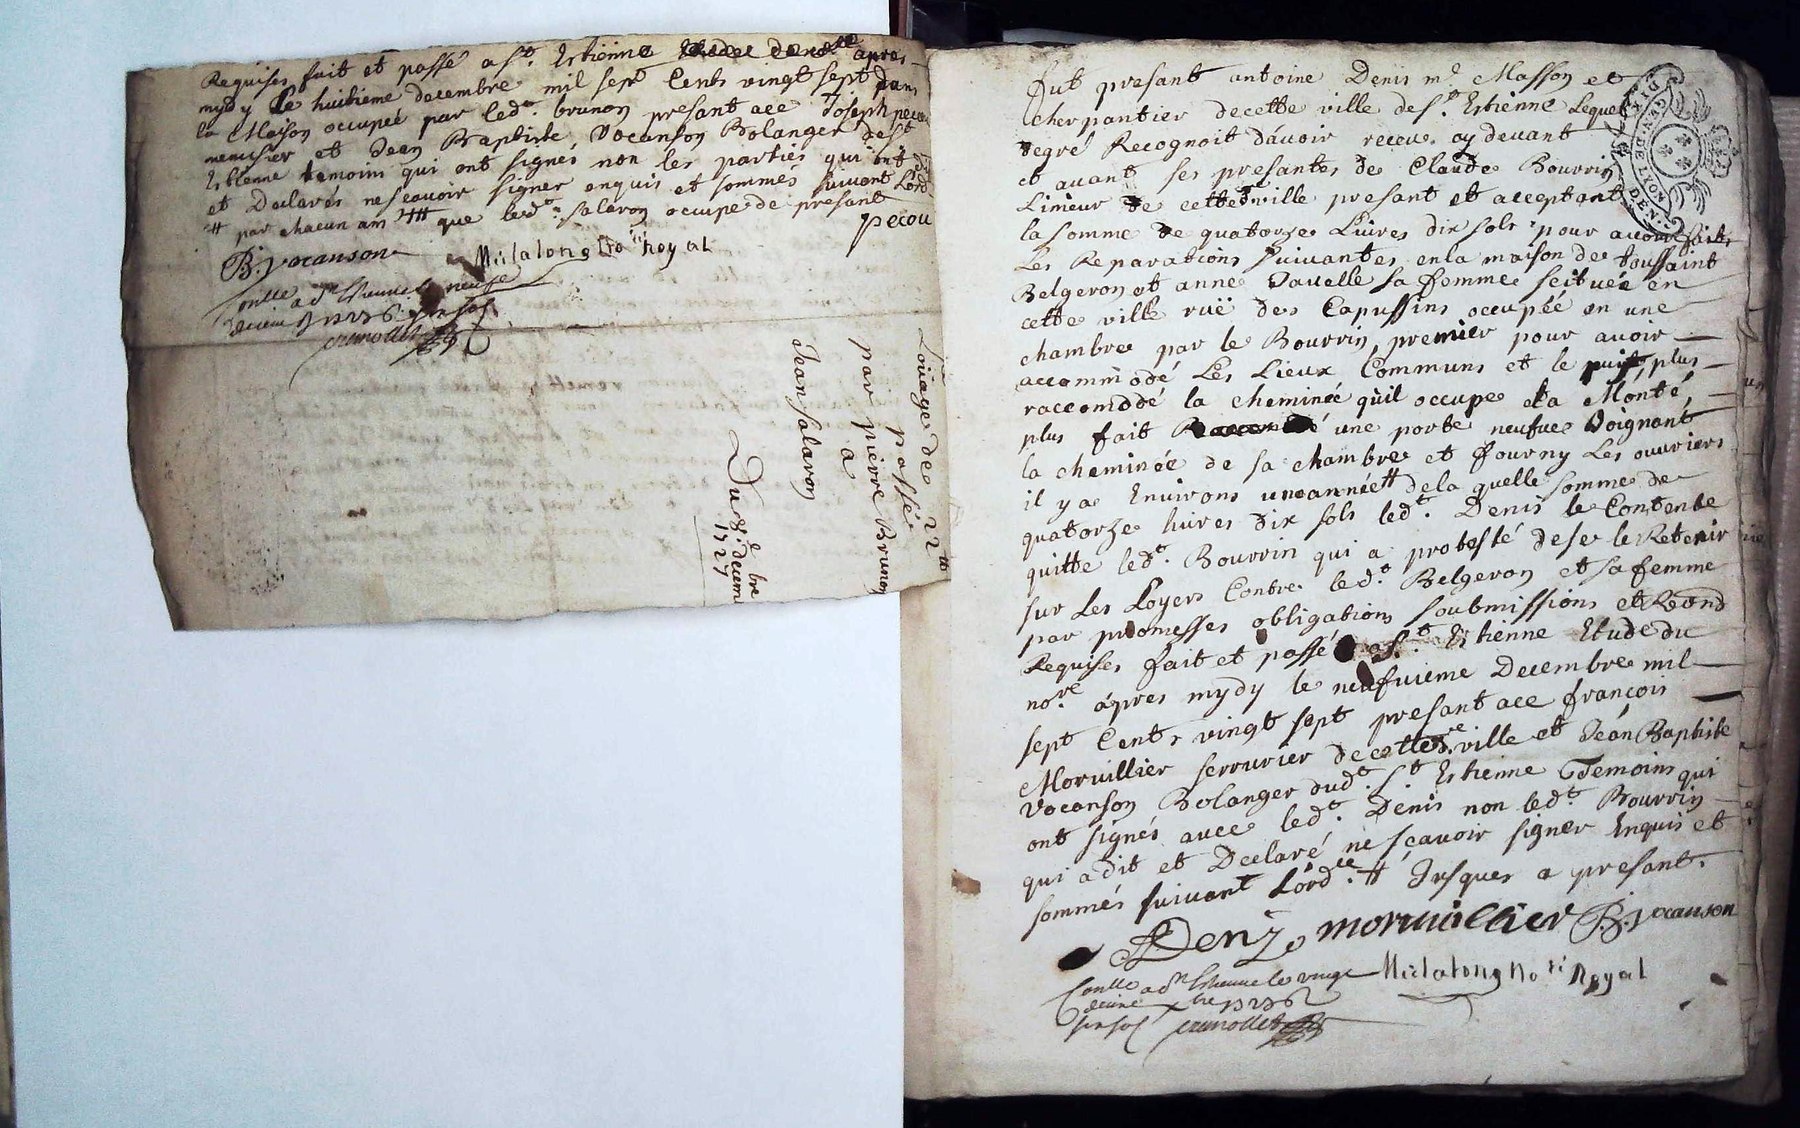 Requises fait et passé a St. Estienne apres
mydy Le huitieme decembre mil sept Cents vingt sept dans
la Maison occupée par led. brunon presant ace Joseph pecou
menusier et Jean Baptiste Vocanson Bolanger de St
Estienne temoins qui ont signés non les parties qui ont dit
et Declarés ne scavoir signer enquis et sommés suivant Lord
# par chacun an # que led. salaron occupe de present
pecou
B. vocanson Mialalong No.re Royal
Conllé a St Etienne le neufe
six sols
Loüage de 22tt
passé
par pierre Brunon
a
Jean Salaron
Du 8.e decem.bre
1727
fut presant antoine Denis m.e Masson et
cherpantier decette ville de St. Estienne Lequel
degré Recognoit davoir receu cy devant
et avant ses presantes de Claude Bourrin
Limeur de cette ville presant et acceptant
la somme de quatorze Livres dix sols pour avoir faits
Les Reparations suivantes en la maison de toussaint
Belgeron et anne Davelle sa femme scituée en
cette ville rüe des Capussins occupée en une
chambre par le Bourrin, premier pour avoir
accommodé Les Lieux Communs et le puit, plus
raccomodé la cheminée qu'il occupe et la Monté,
plus fait une porte neufve Joignant
la cheminée de sa chambre et fourny Les ouvriers
il y a Environs une année # de la quelle somme de
quatorze livres dix sols led.t Denis le Contente
quitte led.t Bourrin qui a protesté de se les Retenir
sur Les Loyers Contre led.t Belgeron et sa femme
par promesses obligations soubmissions et Renond
Requises fait et passé a St. Estienne Etude du
no.re apres mydy le neufvieme Decembre mil
sept Cents vingt sept presant ace françois
Morvillier serrurier de cette ville et Jean Baptiste
Vocanson Bolanger dud.t St Estienne Temoins qui
ont signés avec led.t Denis non led.t Bourrin
qui a dit et Declaré ne scavoir signer Enquis et
sommés suivant Lord.ce # Jusques a presant.
Deny morvillier B. vocanson
Conllé a St Etienne le vingt Mialalong No.re Royal
six sols
GEN DE LYON DENI